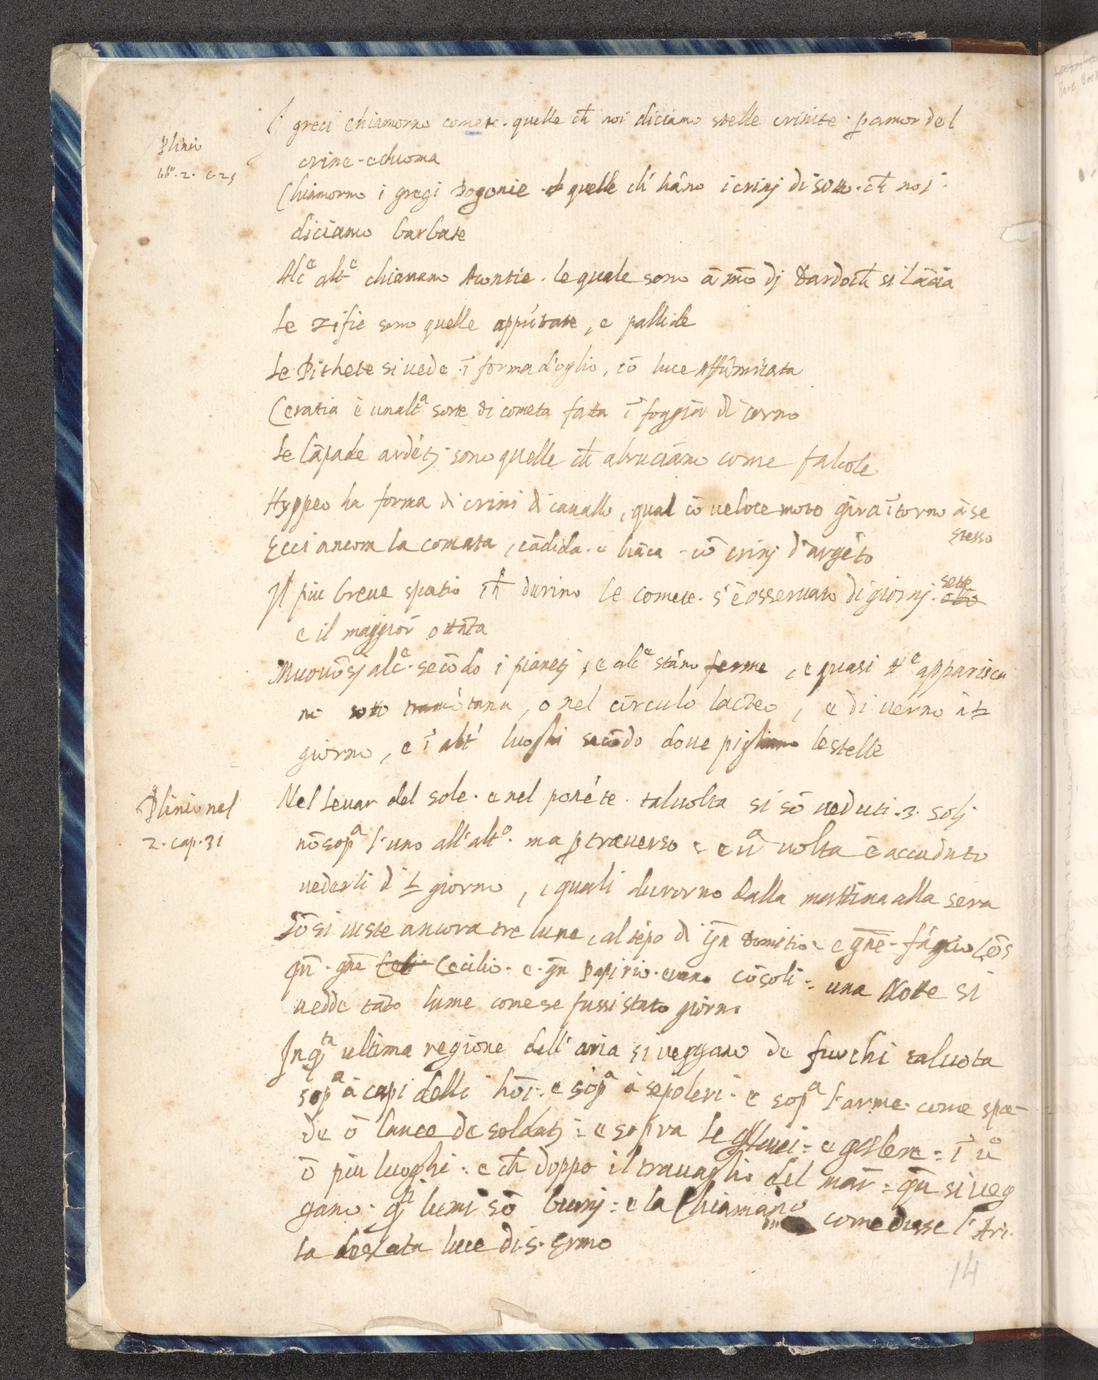 Plinio
lib. 2. c. 25
I greci chiamorno comete. quelle ch̄ noi diciamo stelle crinite. p amor del
crine. e chioma
Chiamorno i gregi Pogonie quelle ch̄ hāno i crinj di sotto. ch̄ noi
diciamo barbate
Alc̄e alt̄e chiamano Acontie. le quale sono ā mō dj dardo ch̄ si lācia
Le zifie sono quelle appūtate, e pallide
Le Pithete si vede ī forma d'oglio, cō luce affumicata
Ceratia è unaltᵃ sorte di cometa fata ī foggia di corno
Le lāpade ardētj sono quelle ch̄ abruciāno come falcole
Hyppeo ha forma di crini di cauallo, qual cō veloce moto gira ītorno à se
stesso
Ecci ancora la comata, cādida. e biāca. cō crinj d'argēto
Il piu breue spatio ch̄ durino le comete. s'è osseruato di giornj. sette
e il maggior ottāta
Muouōsj alcᵉ. secōdo i pianetj, e alcᵉ stāno ferme, e quasi tᵉ apparisca
no sotto tramōtana, o nel circulo lacteo, e di uerno
giorno, e ī alt' luoghi secōdo doue pigliano le stelle
Plinio nel
2. cap. 31
Nel leuar del sole. e nel ponēte. taluolta si sō veduti. 3. solj
nō sopᵃ l'uno all'altᵒ. ma p trauerso e uᵃ uolta è accaduto
uederli di giorno, i quali durorno dalla mattina alla sera
Sōsi uiste ancora tre lune, al tēpo di gn̄ domitio. e gn̄e. fānio cōs
qn̄. gne Cecilio. e. gn̄ Papirio. erano cōsoli. una Notte si
uedde tāto lume come se fussi stato giorno
In qᵗᵃ ultima regione dell'aria si veggano de fuochi taluota
sopᵃ à capi delli hōi. e sopᵃ à sepolcri. e sopᵃ l'arme. come spa-
de ō lance de soldatj. e sopra le e gūlere. ī u̇
ō piu luoghi. e ch̄ doppo il trauaglio del mar. qn̄ si veg
gano. qⁱ lumi sō buonj. e la chiamāno come disse l'Ari.
la desiata luce di. S. Ermo
14